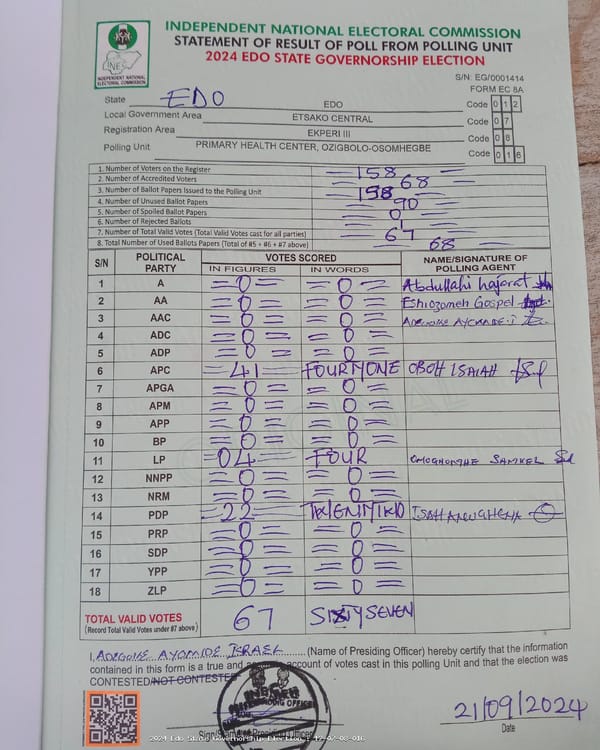 INDEPENDENT NATIONAL ELECTORAL COMMISSION
STATEMENT OF RESULT OF POLL FROM POLLING UNIT
2024 EDO STATE GOVERNORSHIP ELECTION
INDEPENDENT NATIONAL ELECTORAL COMMISSION
S/N: EG/0001414
FORM EC 8A
State EDO EDO Code 0 1 2
Local Government Area ETSAKO CENTRAL Code 0 7
Registration Area EKPERI III Code 0 8
Polling Unit PRIMARY HEALTH CENTER, OZIGBOLO-OSOMHEGBE Code 0 1 6
1. Number of Voters on the Register 158
2. Number of Accredited Voters 68
3. Number of Ballot Papers Issued to the Polling Unit 158
4. Number of Unused Ballot Papers 90
5. Number of Spoiled Ballot Papers 0
6. Number of Rejected Ballots 1
7. Number of Total Valid Votes (Total Valid Votes cast for all parties) 67
8. Total Number of Used Ballots Papers (Total of #5 + #6 + #7 above) 68
S/N POLITICAL PARTY VOTES SCORED NAME/SIGNATURE OF POLLING AGENT
IN FIGURES IN WORDS
1 A =0= =0= Abdullahi hajarat
2 AA =0= =0= Eshiozemeh Gospel
3 AAC =0= =0=
4 ADC =0= =0=
5 ADP =0= =0=
6 APC 41 FOURTYONE OBOH ISAIAH
7 APGA =0= =0=
8 APM =0= =0=
9 APP =0= =0=
10 BP =0= =0=
11 LP 04 FOUR SAMUEL
12 NNPP =0= =0=
13 NRM =0= =0=
14 PDP 22 TWENTYTWO ISAH
15 PRP =0= =0=
16 SDP =0= =0=
17 YPP =0= =0=
18 ZLP =0= =0=
TOTAL VALID VOTES 67 SIXTYSEVEN
(Record Total Valid Votes under #7 above)
I, ADEGOKE AYOMIDE ISRAEL (Name of Presiding Officer) hereby certify that the information
contained in this form is a true and account of votes cast in this polling Unit and that the election was
CONTESTED/NOT CONTESTED
21/09/2024
Date
2024 Edo State Governorship Election